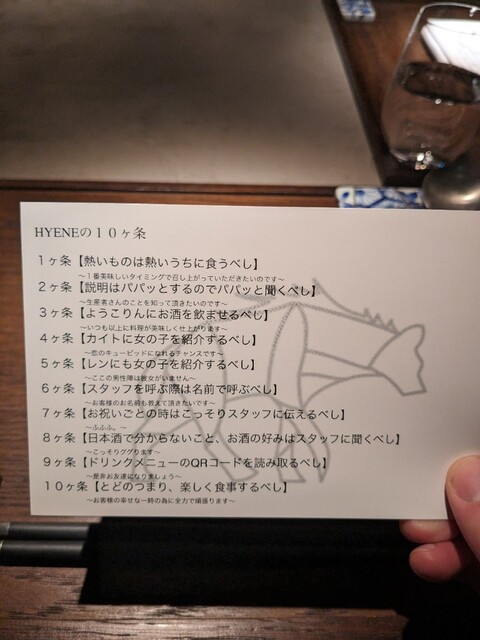 HYENEの１０ヶ条
1ヶ条【熱いものは熱いうちに食うべし】
～１番美味しいタイミングで召し上がっていただきたいのです～
2ヶ条【説明はパパッとするのでパパッと聞くべし】
～生産者さんのことを知って頂きたいのです～
3ヶ条【ようこりんにお酒を飲ませるべし】
～いつも以上に料理が美味しく仕上がります～
4ヶ条【カイトに女の子を紹介するべし】
～恋のキューピッドになれるチャンスです～
5ヶ条【レンにも女の子を紹介するべし】
～ここの男性陣は彼女がいません～
6ヶ条【スタッフを呼ぶ際は名前で呼ぶべし】
～お客様のお名前も教えて頂きたいです～
7ヶ条【お祝いごとの時はこっそりスタッフに伝えるべし】
～ふふふ。～
8ヶ条【日本酒で分からないこと、お酒の好みはスタッフに聞くべし】
～こっそりググります～
9ヶ条【ドリンクメニューのQRコードを読み取るべし】
～是非お友達になりましょう～
10ヶ条【とどのつまり、楽しく食事するべし】
～お客様の幸せな一時の為に全力で頑張ります～